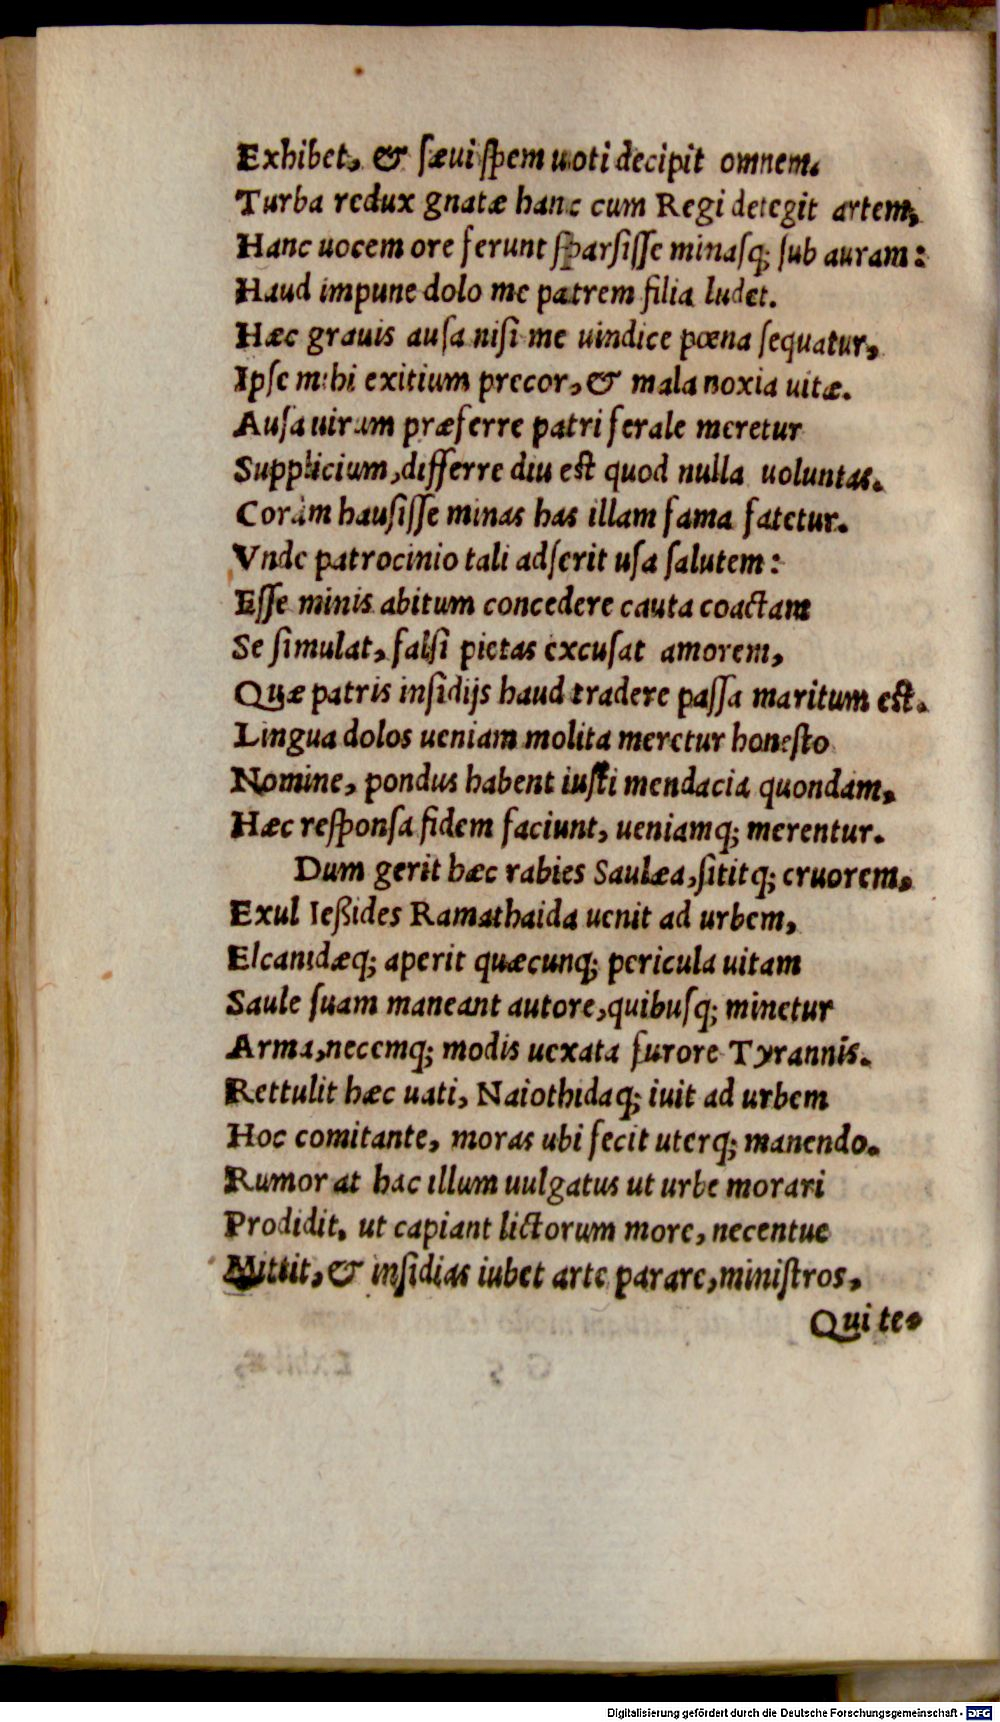 Exhibet, & sæui spem uoti decipit omnem.
Turba redux gnatæ hanc cum Regi detegit artem,
Hanc uocem ore ferunt sparsisse minasq; sub auram:
Haud impune dolo me patrem filia ludet.
Hæc grauis ausa nisi me uindice pœna sequatur,
Ipse mihi exitium precor, & mala noxia uitæ.
Ausa uirum præferre patri ferale meretur
Supplicium, differre diu est quod nulla uoluntas.
Coràm hausisse minas has illam fama fatetur.
Vnde patrocinio tali adserit usa salutem:
Esse minis abitum concedere cauta coactam
Se simulat, falsi pietas excusat amorem,
Quæ patris insidijs haud tradere passa maritum est.
Lingua dolos ueniam molita meretur honesto
Nomine, pondus habent iusti mendacia quondam,
Hæc responsa fidem faciunt, ueniamq; merentur.
Dum gerit hæc rabies Saulæa, sititq; cruorem,
Exul Ießides Ramathaida uenit ad urbem,
Elcanidæq; aperit quæcunq; pericula uitam
Saule suam maneant autore, quibusq; minetur
Arma, necemq; modis uexata furore Tyrannis.
Rettulit hæc uati, Naiothidaq; iuit ad urbem
Hoc comitante, moras ubi fecit uterq; manendo.
Rumor at hac illum uulgatus ut urbe morari
Prodidit, ut capiant lictorum more, necentue
Mittit, & insidias iubet arte parare, ministros,
Qui te-
Digitalisierung gefördert durch die Deutsche Forschungsgemeinschaft - DFG